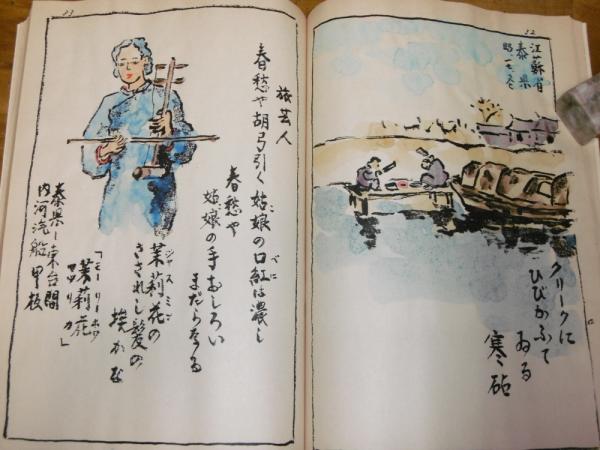 22
江蘇省
泰県
クリークに
ひびかふて
ゐる
寒砧
23
旅芸人
春愁や胡弓引く姑娘の口紅は濃し
べに
春愁や
姑娘の手おしろい
まだらなる
ジャスミン
茉莉花の
さされし髪の
埃かな
モーリーホワ
「茉莉花」
マツリカ
泰県ー東台間
内河汽船甲板